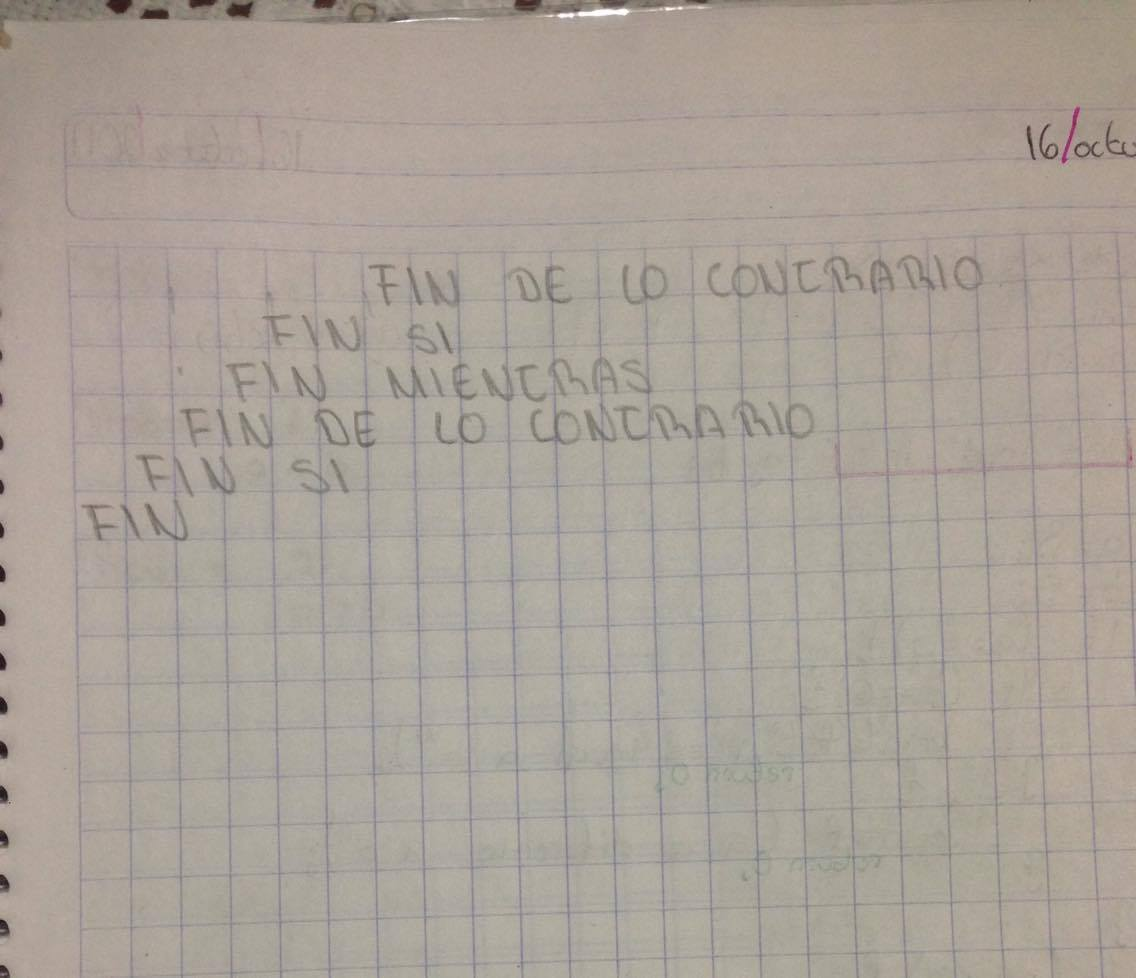 16/octu
FIN DE LO CONTRARIO
FIN SI
FIN MIENTRAS
FIN DE LO CONTRARIO
FIN SI
FIN